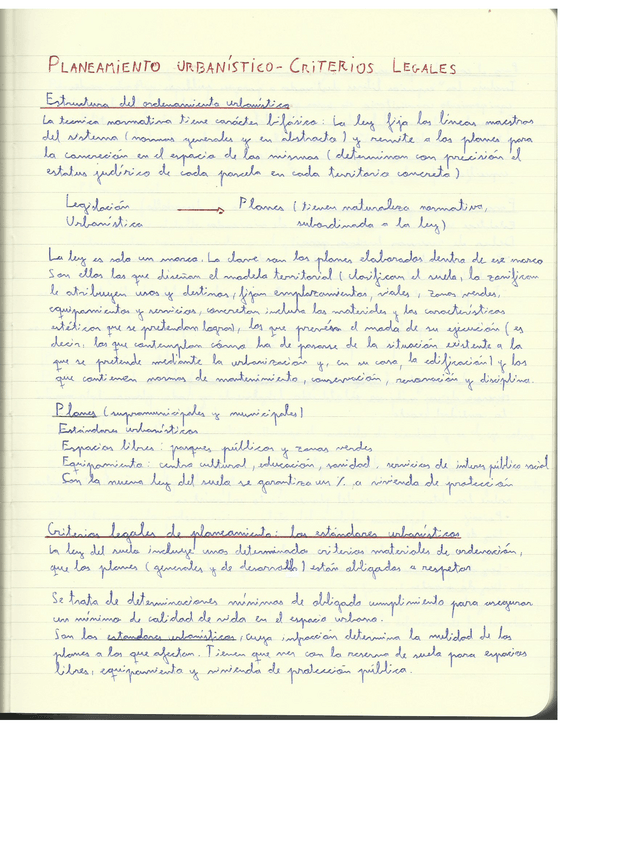 PLANEAMIENTO URBANÍSTICO - CRITERIOS LEGALES
Estructura del ordenamiento urbanístico
La tecnica normativa tiene carácter bifásico: La ley fija las líneas maestras
del sistema (normas generales y en abstracto) y remite a los planes para
la concreción en el espacio de las mismas (determinan con precisión el
estatus jurídico de cada parcela en cada territorio concreto)
Legislación → Planes (tienen naturaleza normativa,
Urbanística subordinada a la ley)
La ley es solo un marco. La clave son los planes elaborados dentro de ese marco
Son ellos los que diseñan el modelo territorial (clasifican el suelo, lo zonifican
le atribuyen usos y destinos, fijan emplazamientos, viales, zonas verdes,
equipamientos y servicios, concretan incluso los materiales y las características
estéticas que se pretendan lograr), los que prevén el modo de su ejecución (es
decir, los que contemplan cómo ha de pasarse de la situación existente a la
que se pretende mediante la urbanización y, en su caso, la edificación) y los
que contienen normas de mantenimiento, conservación, renovación y disciplina.
Planes (supramunicipales y municipales)
Estándares urbanísticos
Espacios libres: parques públicos y zonas verdes
Equipamiento: centro cultural, educación, sanidad, servicios de interes público social
Con la nueva ley del suelo se garantiza un % a vivienda de protección
Criterios legales de planeamiento: los estándares urbanísticos
La ley del suelo incluye unos determinado criterios materiales de ordenación,
que los planes (generales y de desarrollo) están obligados a respetar
Se trata de determinaciones mínimas de obligado cumplimiento para asegurar
un mínimo de calidad de vida en el espacio urbano.
Son los estandares urbanísticos, cuya infracción determina la nulidad de los
planes a los que afectan. Tienen que ver con la reserva de suelo para espacios
libres, equipamiento y vivienda de protección pública.